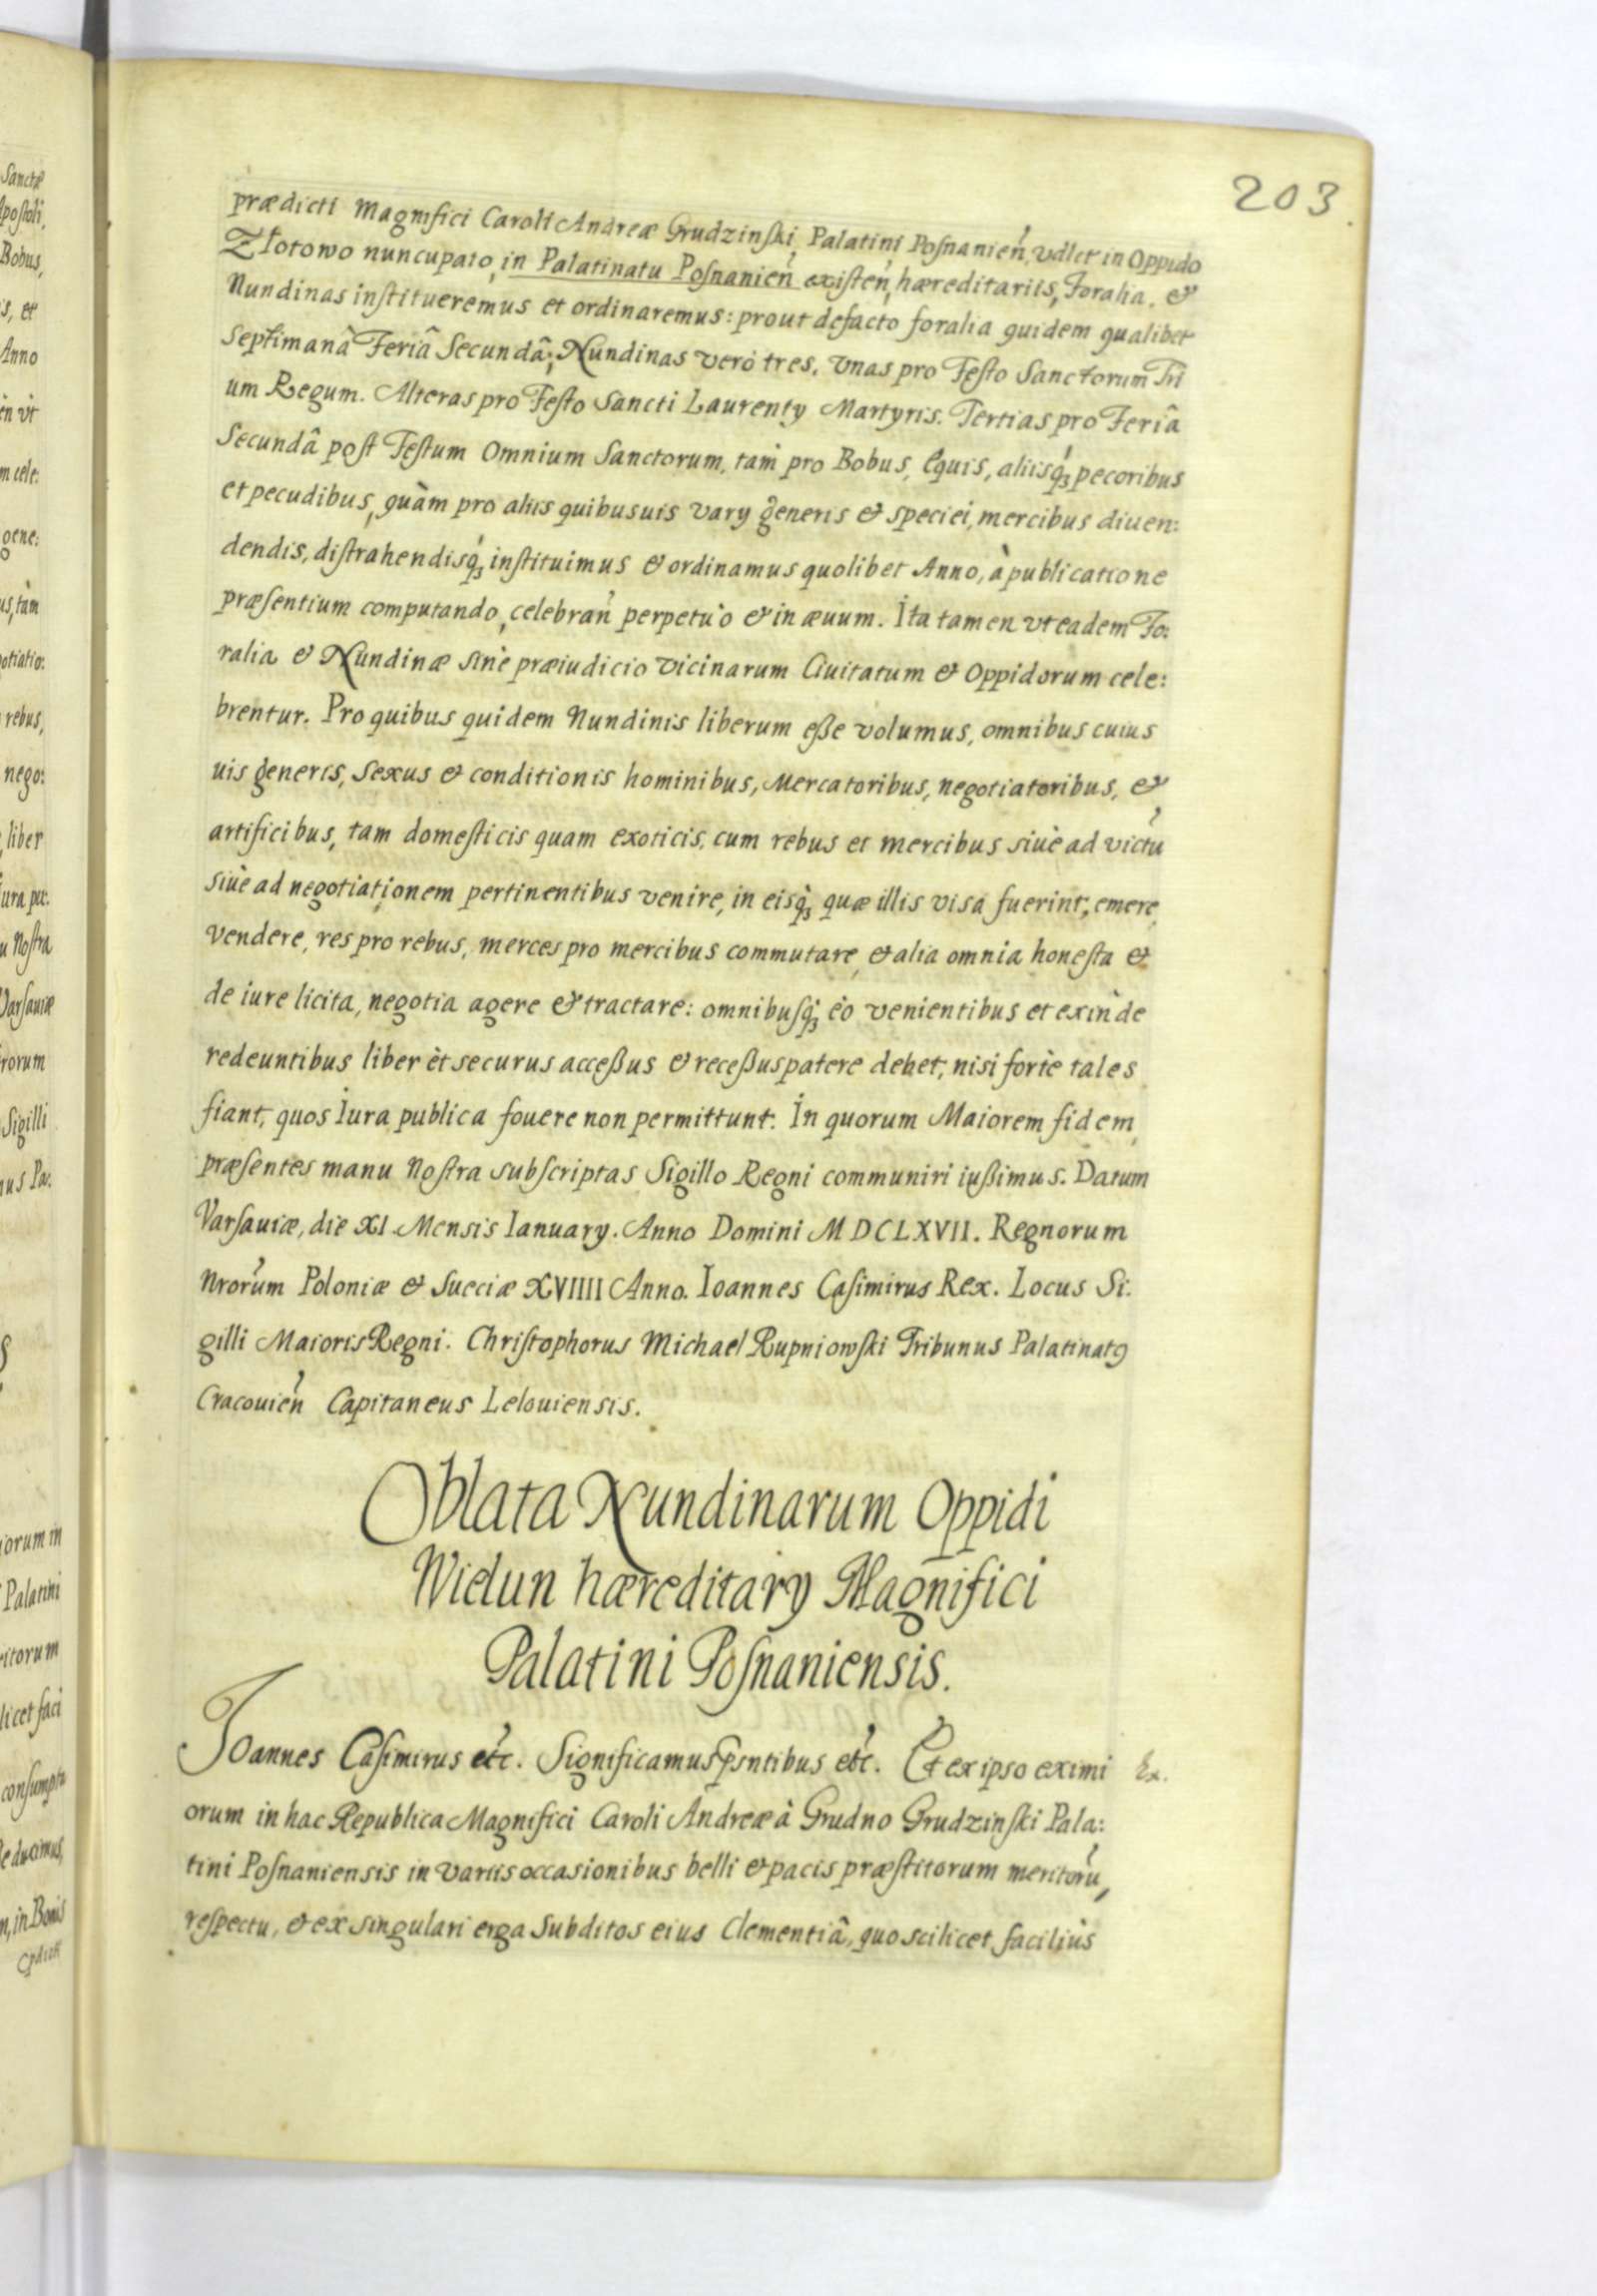 203
prædicti Magnifici Caroli Andreæ Grudzinski, Palatini Posnanien, vdlet in Oppido
Złotowo nuncupato, in Palatinatu Posnanien existen, hæreditariis, Foralia. &
Nundinas institueremus et ordinaremus: prout defacto foralia quidem qualibet
Septimanâ Feriâ Secundâ; Nundinas verò tres. Vnas pro Festo Sanctorum Tri
um Regum. Alteras pro Festo Sancti Laurenty Martyris. Tertias pro Feriâ
Secundâ post Festum Omnium Sanctorum, tam pro Bobus, Equis, aliisq3 pecoribus
et pecudibus, quàm pro aliis quibusuis vary generis & speciei, mercibus diuen:
dendis, distrahendisq3 instituimus & ordinamus quolibet Anno, à publicatione
præsentium computando, celebran perpetuò & in æuum. Ita tamen vt eadem Fo:
ralia & Nundinæ sinè præiudicio vicinarum Ciuitatum & Oppidorum cele:
brentur. Pro quibus quidem Nundinis liberum esse volumus, omnibus cuius
uis generis, sexus & conditionis hominibus, Mercatoribus, negotiatoribus, &
artificibus, tam domesticis quam exoticis, cum rebus et mercibus siuè ad victu
siuè ad negotiationem pertinentibus venire, in eisq3 quæ illis visa fuerint, emere,
vendere, res pro rebus, merces pro mercibus commutare, & alia omnia honesta &
de iure licita, negotia agere & tractare: omnibusq3 eò venientibus et exinde
redeuntibus liber èt securus accessus & recessus patere debet, nisi fortè tales
fiant, quos Iura publica fouere non permittunt. In quorum Maiorem fidem,
præsentes manu Nostra subscriptas Sigillo Regni communiri iussimus. Datum
Varsauiæ, die XI Mensis Ianuary. Anno Domini MDCLXVII. Regnorum
Nrorum Poloniæ & Sueciæ XVIIII Anno. Ioannes Casimirus Rex. Locus Si:
gilli Maioris Regni. Christophorus Michael Rupniowski Tribunus Palatinat9
Cracouien Capitaneus Lelouiensis.
Oblata Nundinarum Oppidi
Wielun hæreditary Magnifici
Palatini Posnaniensis.
Ioannes Casimirus etc. Significamus pntibus etc. Et ex ipso eximi Ex.
orum in hac Republica Magnifici Caroli Andreæ à Grudno Grudzinski Pala:
tini Posnaniensis in variis occasionibus belli & pacis præstitorum meritoru,
respectu, & ex singulari erga Subditos eius Clementiâ, quo scilicet faciliùs